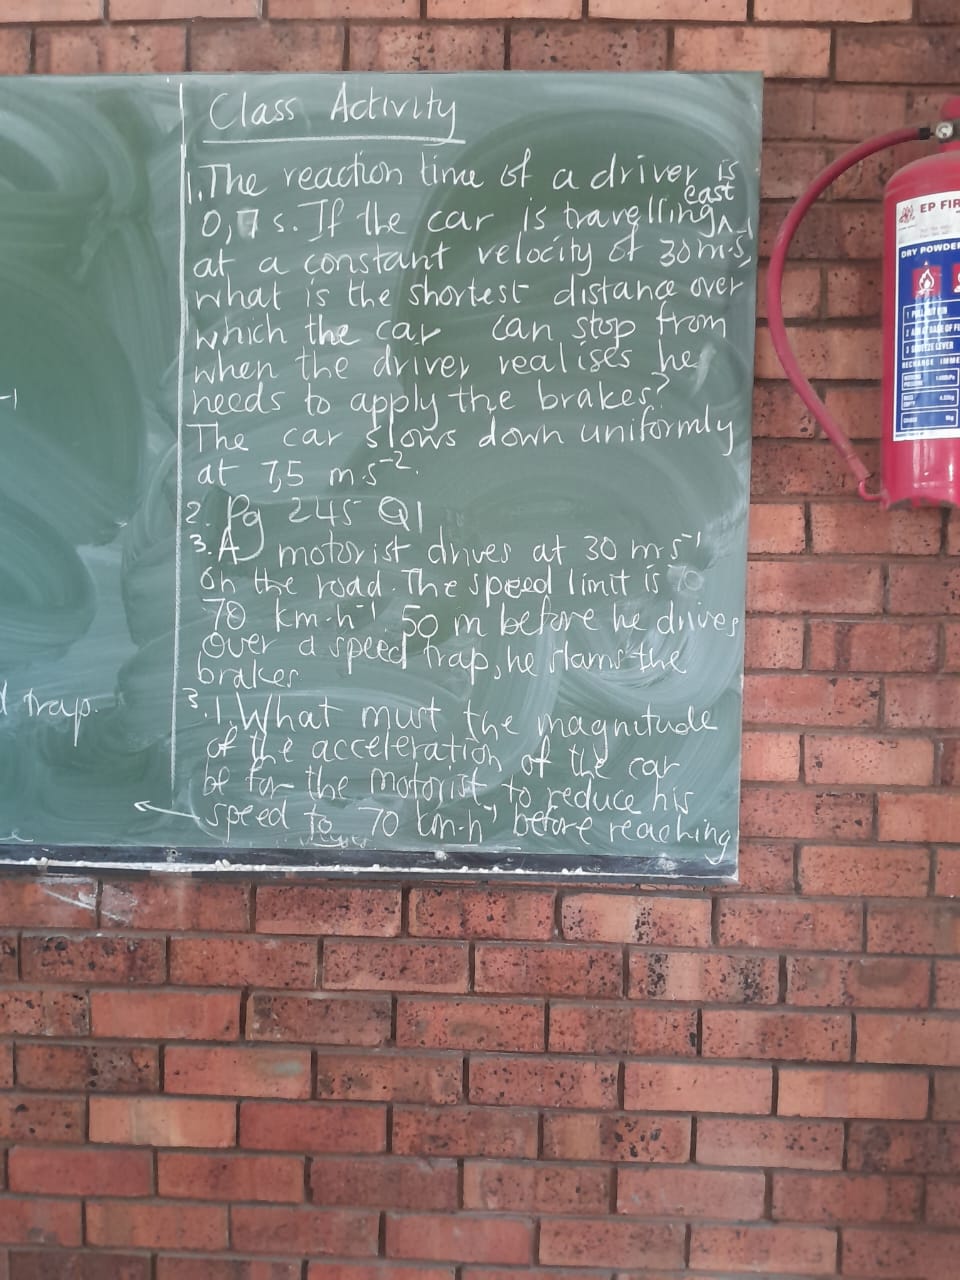 Class Activity
1. The reaction time of a driver is
east
0,7 s. If the car is travelling ^
at a constant velocity of 30 m·s⁻¹,
what is the shortest distance over
which the car can stop from
when the driver realises he
needs to apply the brakes?
The car slows down uniformly
at 7,5 m·s⁻².
2. Pg 245 Q1
3. A motorist drives at 30 m·s⁻¹
on the road. The speed limit is 70
70 km·h⁻¹. 50 m before he drives
over a speed trap, he slams the
brakes
3.1. What must the magnitude
of the acceleration of the car
be for the motorist to reduce his
speed to 70 km·h⁻¹ before reaching
-1
trap.
EP FIR
DRY POWDE